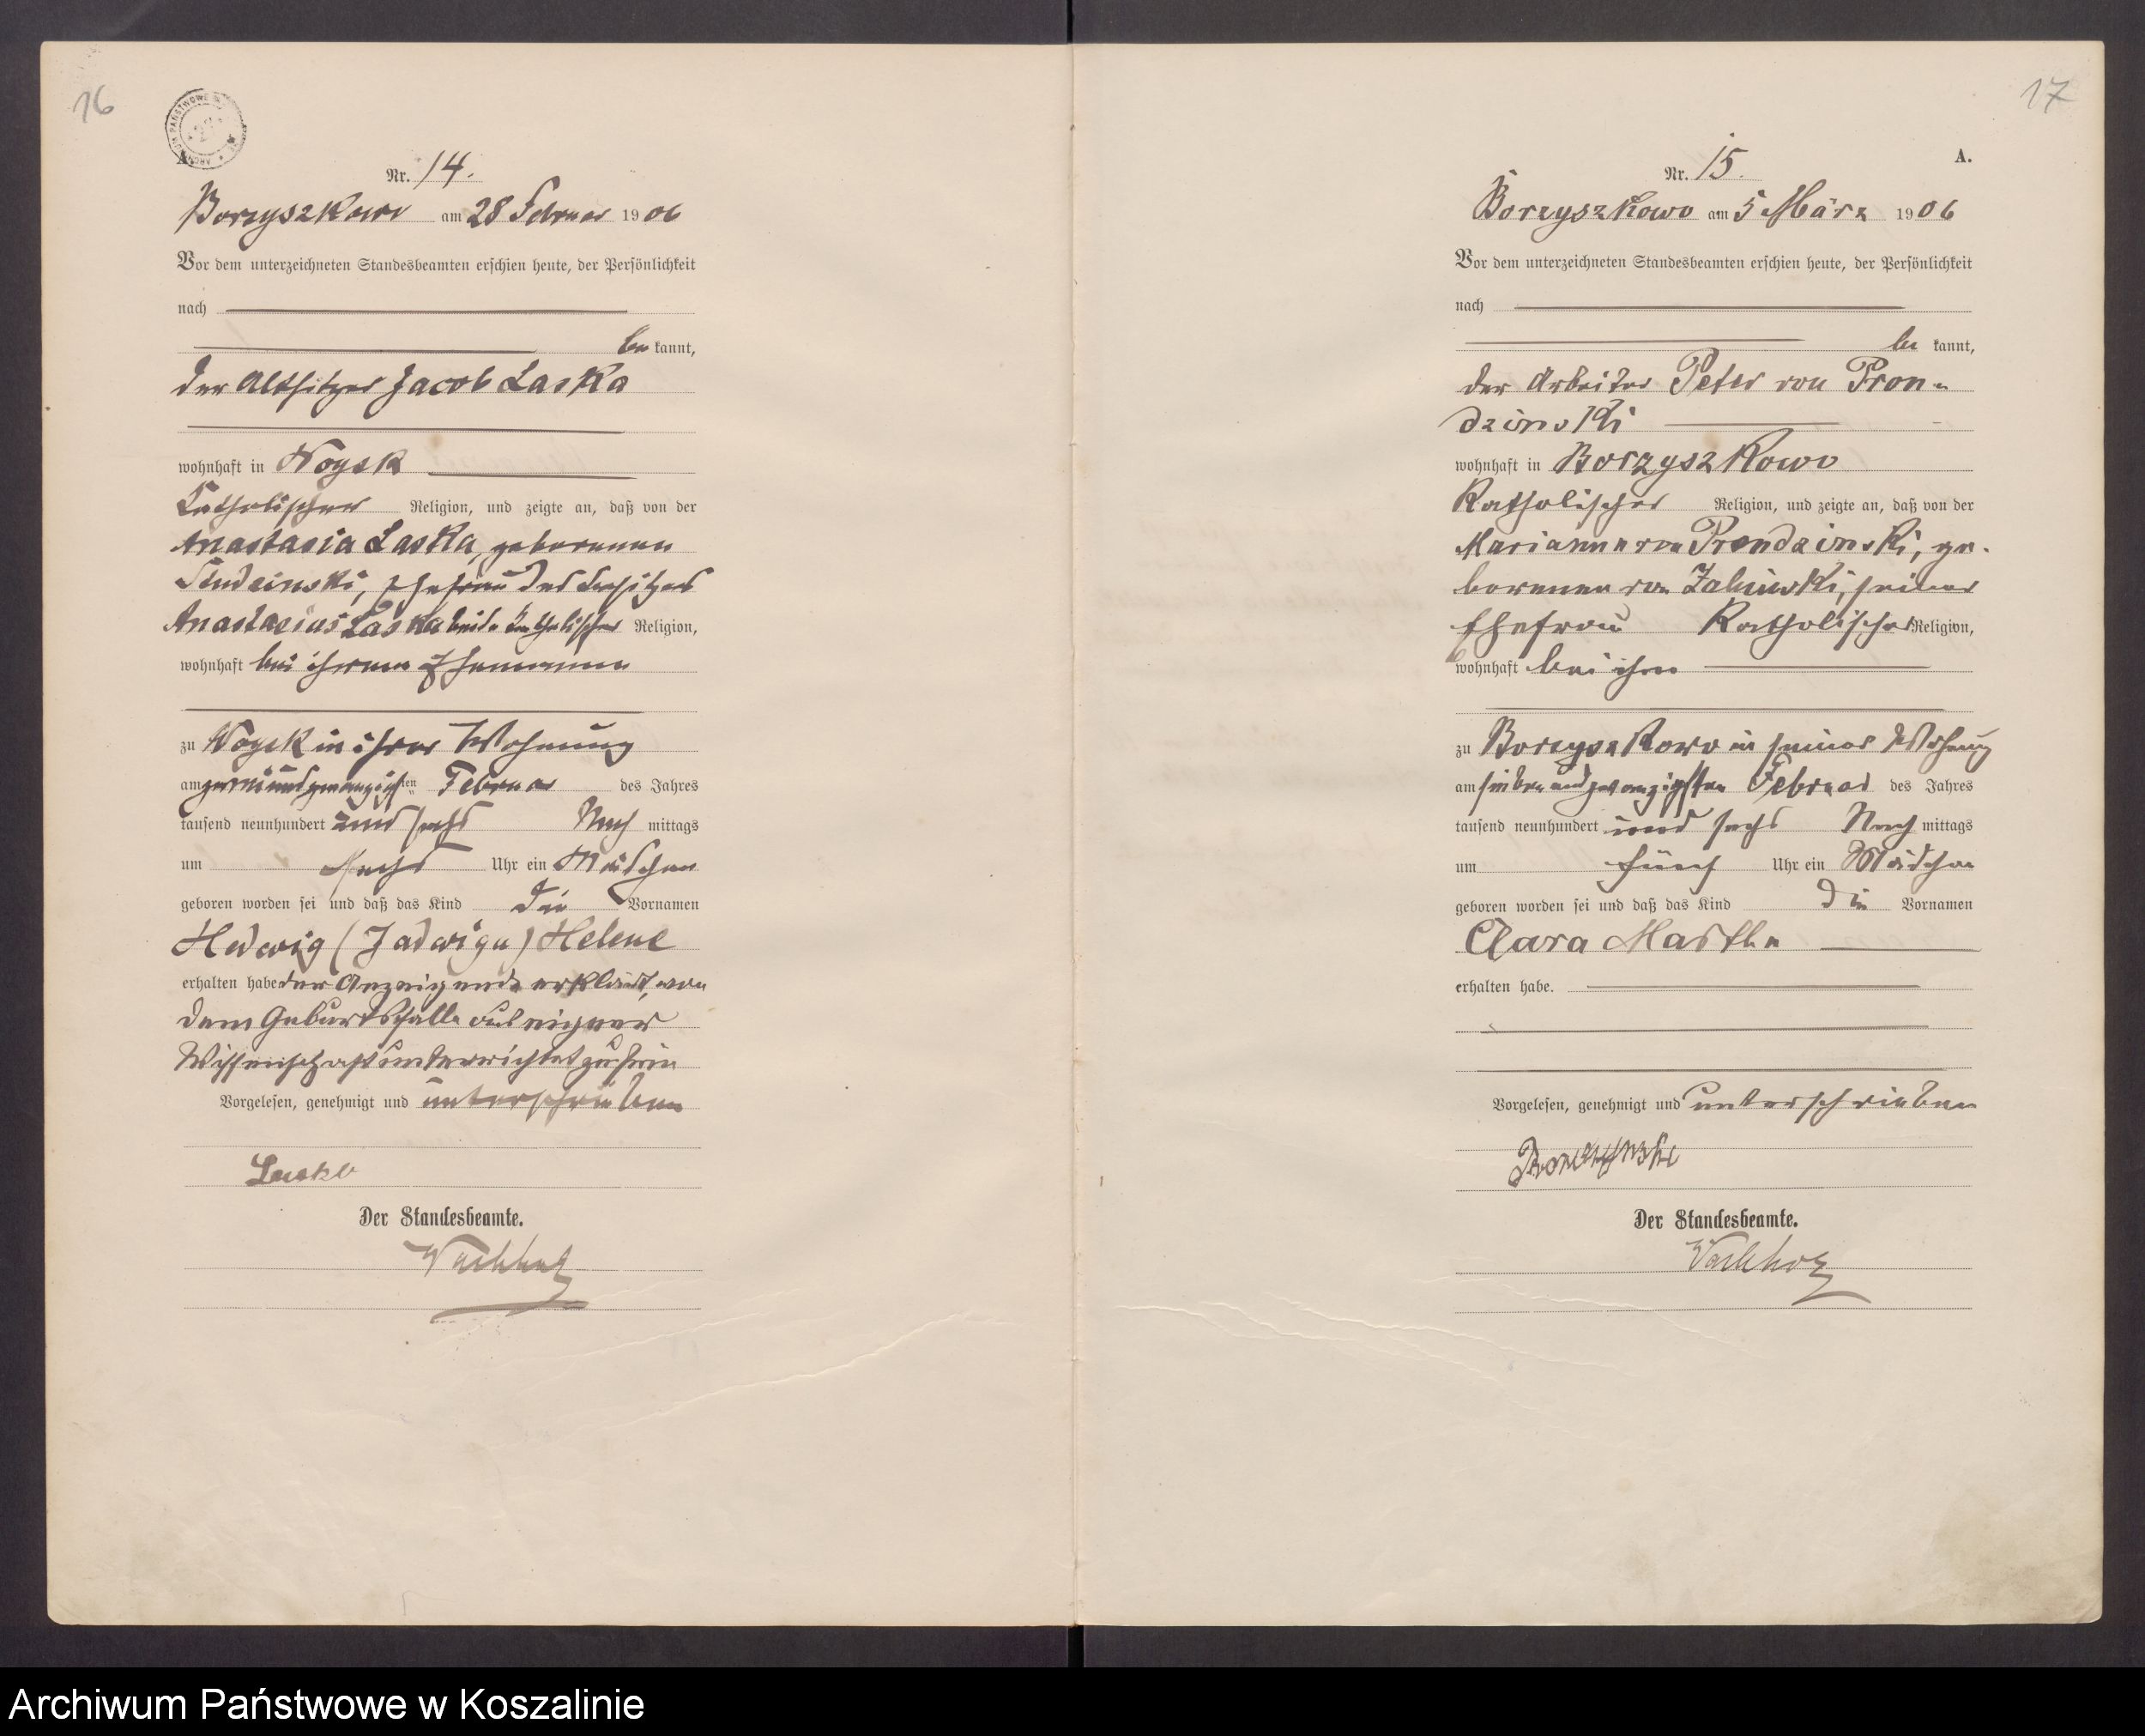 16
ARCHIWUM PAŃSTWOWE
A
Nr. 14.
Borzyszkowo am 28 Februar 1906
Vor dem unterzeichneten Standesbeamten erschien heute, der Persönlichkeit
nach
be kannt,
der Altsitzer Jacob Laska
wohnhaft in Woysk
katholischer Religion, und zeigte an, daß von der
Anastasia Laska, geborenen
Studzinski, Ehefrau des Besitzers
Anastasius Laska beide katholischer Religion,
wohnhaft bei ihrem Ehemanne
zu Woysk in ihrer Wohnung
am zweiundzwanzigsten Februar des Jahres
tausend neunhundert und sechs Nach mittags
um sechs Uhr ein Mädchen
geboren worden sei und daß das Kind die Vornamen
Hedwig (Jadwiga) Helene
erhalten habe der Anzeigende erklärt, von
dem Geburtsfalle aus eigner
Wissenschaft unterrichtet zu sein
Vorgelesen, genehmigt und unterschrieben
Laska
Der Standesbeamte.
17
A.
Nr. 15.
Borzyszkowo am 5 März 1906
Vor dem unterzeichneten Standesbeamten erschien heute, der Persönlichkeit
nach
be kannt,
der Arbeiter Peter von Pron-
dzinski
wohnhaft in Borzyszkowo
Katholischer Religion, und zeigte an, daß von der
Marianna von Prondzinski, ge-
borenen von Zalewski, seiner
Ehefrau Katholischer Religion,
wohnhaft bei ihm
zu Borzyszkowo in seiner Wohnung
am siebenundzwanzigsten Februar des Jahres
tausend neunhundert und sechs Nach mittags
um fünf Uhr ein Mädchen
geboren worden sei und daß das Kind die Vornamen
Clara Martha
erhalten habe.
Vorgelesen, genehmigt und unterschrieben
Der Standesbeamte.
Archiwum Państwowe w Koszalinie